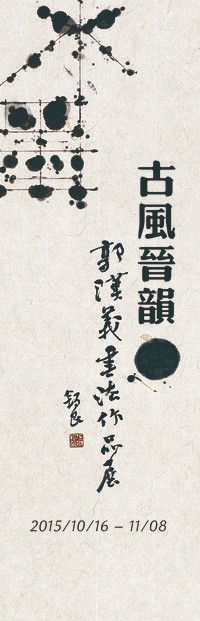 古風晉韻
郭漢義書法作品展
2015/10/16 – 11/08